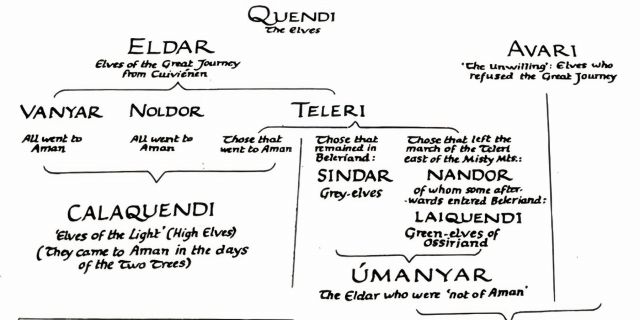 QUENDI
The Elves
ELDAR
Elves of the Great Journey
from Cuiviénen
AVARI
'The Unwilling': Elves who
refused the Great Journey
VANYAR
All went to
Aman
NOLDOR
All went to
Aman
TELERI
Those that
went to Aman
Those that
remained in
Beleriand:
SINDAR
Grey-elves
Those that left the
march of the Teleri
east of the Misty Mts.:
NANDOR
of whom some after-
-wards entered Beleriand:
LAIQUENDI
Green-elves of
Ossiriand
CALAQUENDI
'Elves of the Light' (High Elves)
(They came to Aman in the days
of the Two Trees)
ÚMANYAR
The Eldar who were 'not of Aman'